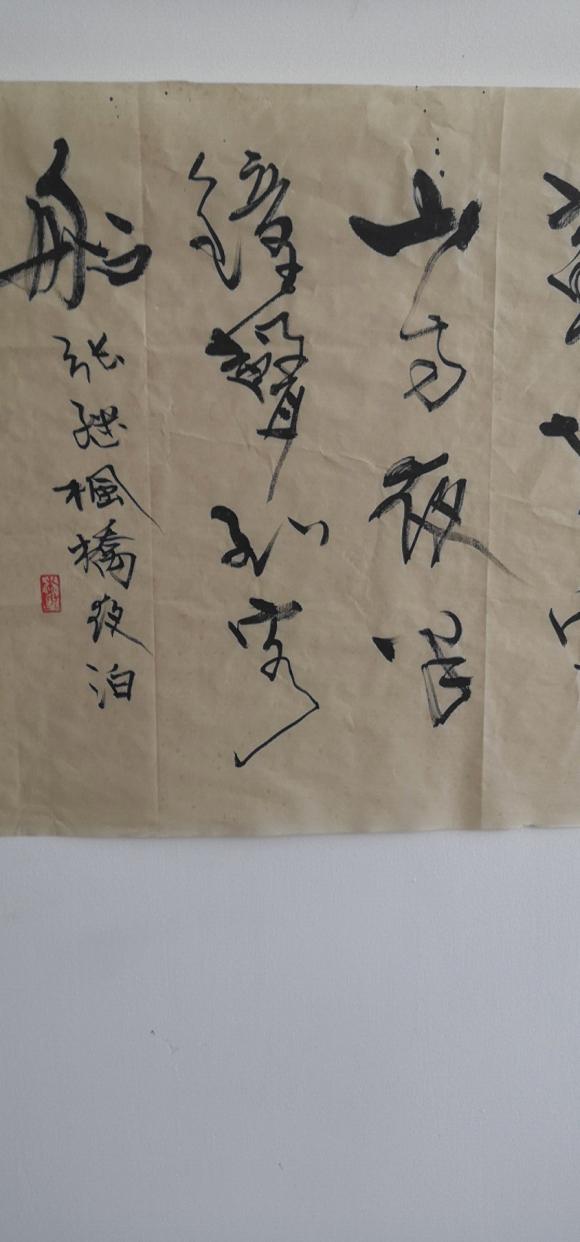 山寺夜半
鐘聲到客
船
张继楓橋夜泊